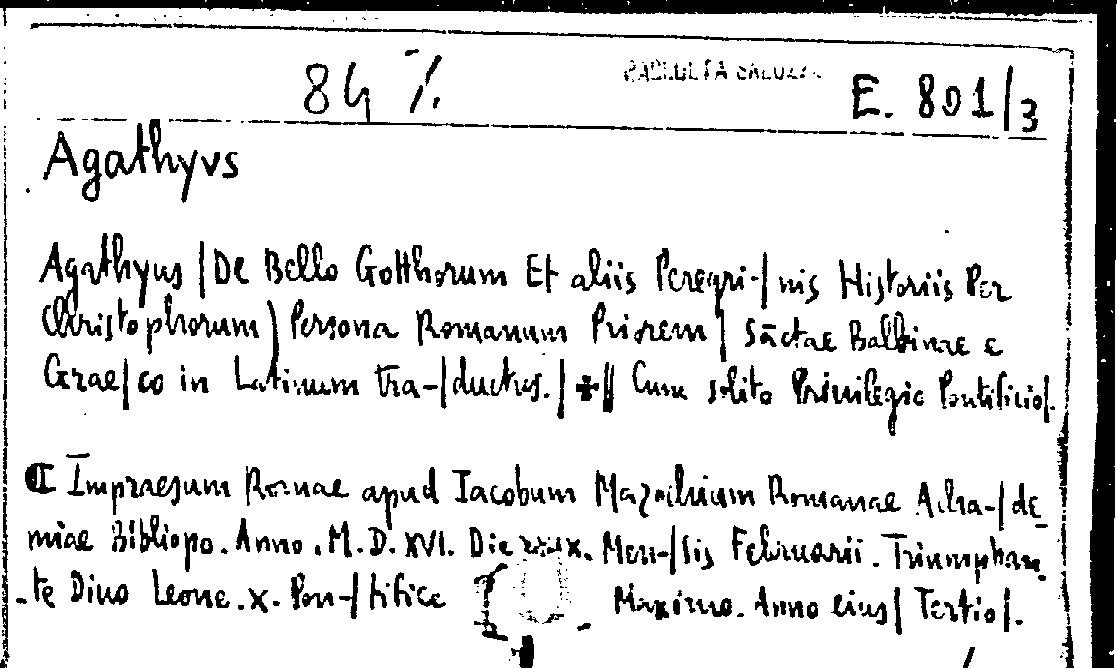 84 %
E. 801/3
Agathyus
Agathyus / De Bello Gotthorum Et aliis Peregri-/nis Historiis Per
Christophorum / Persona Romanum Priorem / Sāctae Balbinae e
Grae/co in Latinum tra-/ductus. / + // Cum solito Privilegio Pontificio/.
Impraesum Romae apud Iacobum Mazochium Romanae Acha-/de
miae Bibliopo. Anno. M. D. XVI. Die Mem-/sis Februarii. Triumphan
-te Divo Leone. X. Pon-/tifice Maximo. Anno eius / Tertio/.